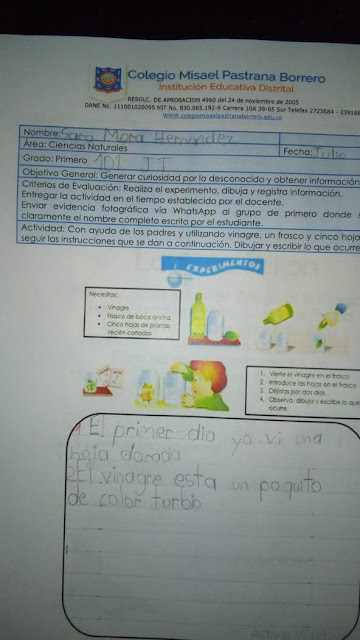 Colegio Misael Pastrana Borrero
Institución Educativa Distrital
RESOLC. DE APROBACION 4960 del 24 de noviembre de 2005
DANE No. 111001020095 NIT No. 830.065.192-6 Carrera 10A 39-05 Sur Telefax 2725684 -
www.colegiomisaelpastranaborrero.edu.co
Nombre: Sara Mora Hernandez
Área: Ciencias Naturales Fecha: Julio
Grado: Primero 101 JT
Objetivo General: Generar curiosidad por lo desconocido y obtener información
Criterios de Evaluación: Realiza el experimento, dibuja y registra información.
Entregar la actividad en el tiempo establecido por el docente.
Enviar evidencia fotográfica vía WhatsApp al grupo de primero donde
claramente el nombre completo escrito por el estudiante.
Actividad: Con ayuda de los padres y utilizando vinagre, un frasco y cinco hoja
seguir las instrucciones que se dan a continuación. Dibujar y escribir lo que ocurre
EXPERIMENTOS
Necesitas:
• Vinagre
• Frasco de boca ancha
• Cinco hojas de plantas
recién cortadas
1. Vierte el vinagre en el frasco
2. Introduce las hojas en el frasco
3. Déjalas por dos días
4. Observa, dibuja y escribe lo que
ocurre.
1 El primer dia ya vi una
hoja dorada
2 El vinagre esta un poquito
de color turbio